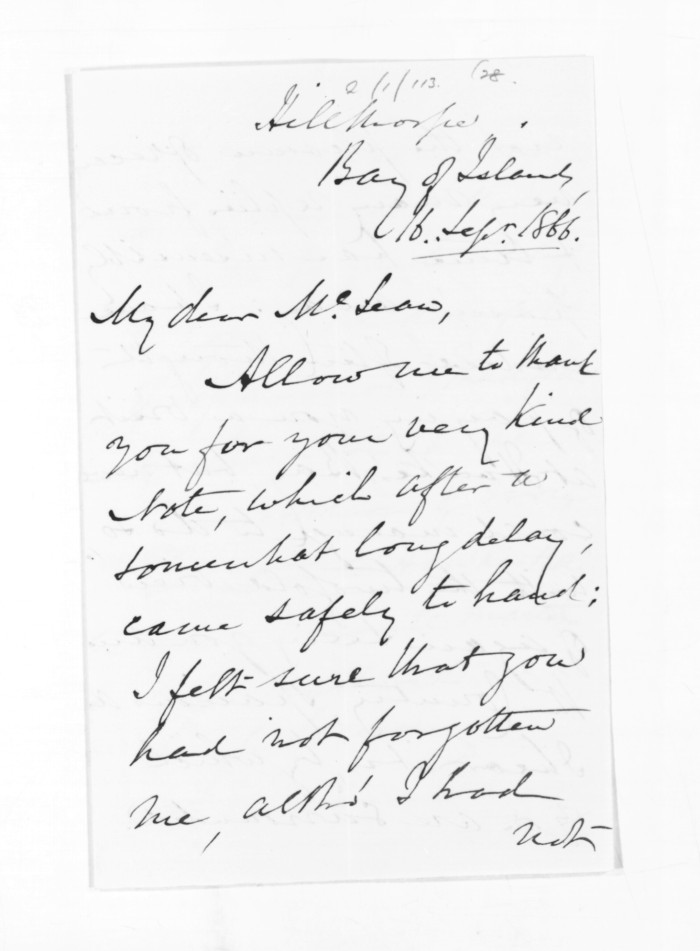 2/1/113. (28.
Hillthorpe.
Bay of Islands,
16. Sepr. 1866.
My dear Mc.Lean,
Allow me to thank
you for your very kind
Note, which after a
somewhat long delay,
came safely to hand:
I felt sure that you
had not forgotten
me, altho' I had
not